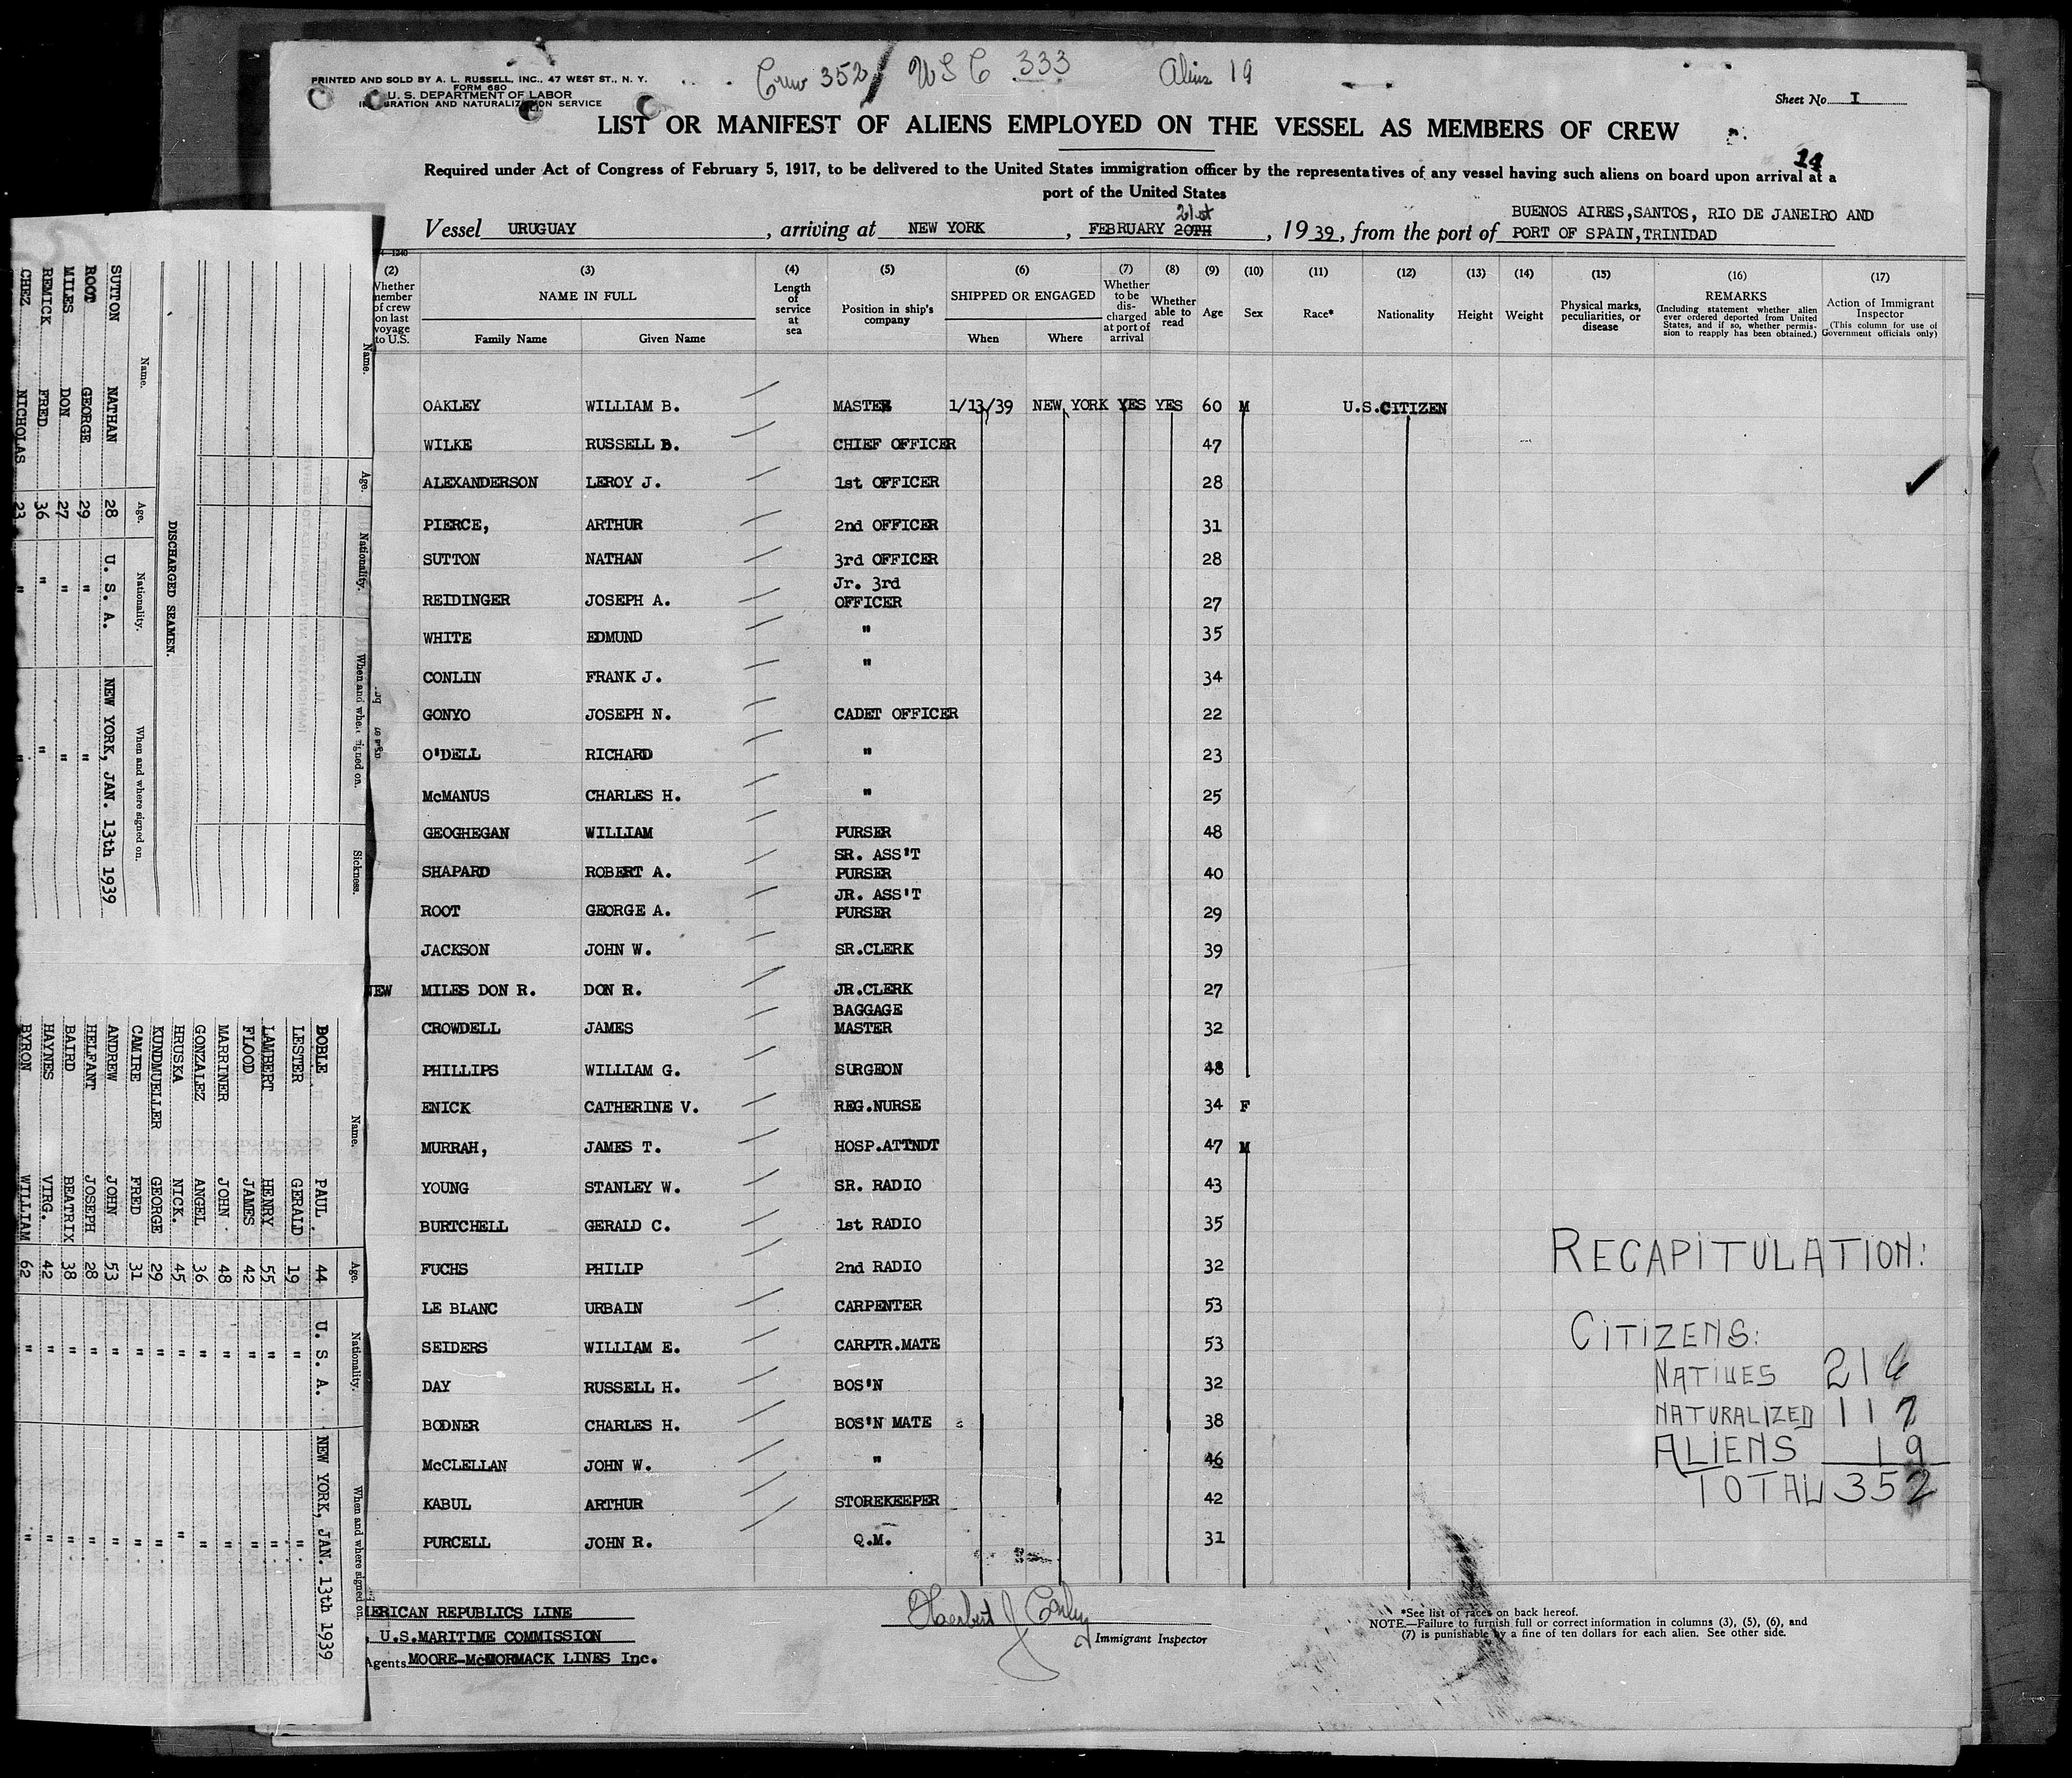 Crew 352 / USC 333 Aliens 19
PRINTED AND SOLD BY A. L. RUSSELL, INC., 47 WEST ST., N. Y.
FORM 680
U. S. DEPARTMENT OF LABOR
IMMIGRATION AND NATURALIZATION SERVICE
Sheet No. I
LIST OR MANIFEST OF ALIENS EMPLOYED ON THE VESSEL AS MEMBERS OF CREW
14
Required under Act of Congress of February 5, 1917, to be delivered to the United States immigration officer by the representatives of any vessel having such aliens on board upon arrival at a
port of the United States
21st
BUENOS AIRES,SANTOS, RIO DE JANEIRO AND
Vessel URUGUAY, arriving at NEW YORK, FEBRUARY 20TH, 1939, from the port of PORT OF SPAIN,TRINIDAD
(2) (3) (4) (5) (6) (7) (8) (9) (10) (11) (12) (13) (14) (15) (16) (17)
Whether member of crew on last voyage to U.S.
NAME IN FULL
Family Name Given Name
Length of service at sea
Position in ship's company
SHIPPED OR ENGAGED
When Where
Whether to be discharged at port of arrival
Whether able to read
Age
Sex
Race*
Nationality
Height
Weight
Physical marks, peculiarities, or disease
REMARKS
(Including statement whether alien ever ordered deported from United States, and if so, whether permission to reapply has been obtained.)
Action of Immigrant Inspector
(This column for use of Government officials only)
OAKLEY WILLIAM B. MASTER 1/13/39 NEW YORK YES YES 60 M U.S.CITIZEN
WILKE RUSSELL B. CHIEF OFFICER 47
ALEXANDERSON LEROY J. 1st OFFICER 28
PIERCE, ARTHUR 2nd OFFICER 31
SUTTON NATHAN 3rd OFFICER 28
REIDINGER JOSEPH A. Jr. 3rd OFFICER 27
WHITE EDMUND " 35
CONLIN FRANK J. " 34
GONYO JOSEPH N. CADET OFFICER 22
O'DELL RICHARD " 23
McMANUS CHARLES H. " 25
GEOGHEGAN WILLIAM PURSER 48
SHAPARD ROBERT A. SR. ASS'T PURSER 40
ROOT GEORGE A. JR. ASS'T PURSER 29
JACKSON JOHN W. SR.CLERK 39
NEW MILES DON R. DON R. JR.CLERK 27
CROWDELL JAMES BAGGAGE MASTER 32
PHILLIPS WILLIAM G. SURGEON 48
ENICK CATHERINE V. REG.NURSE 34 F
MURRAH, JAMES T. HOSP.ATTNDT 47 M
YOUNG STANLEY W. SR. RADIO 43
BURTCHELL GERALD C. 1st RADIO 35
FUCHS PHILIP 2nd RADIO 32
LE BLANC URBAIN CARPENTER 53
SEIDERS WILLIAM E. CARPTR.MATE 53
DAY RUSSELL H. BOS'N 32
BODNER CHARLES H. BOS'N MATE 38
McCLELLAN JOHN W. " 46
KABUL ARTHUR STOREKEEPER 42
PURCELL JOHN R. Q.M. 31
RECAPITULATION:
CITIZENS:
NATIVES 216
NATURALIZED 117
ALIENS 19
TOTAL 352
MERICAN REPUBLICS LINE
U.S.MARITIME COMMISSION
Agents MOORE-McCORMACK LINES Inc.
Immigrant Inspector
*See list of races on back hereof.
NOTE.—Failure to furnish full or correct information in columns (3), (5), (6), and
(7) is punishable by a fine of ten dollars for each alien. See other side.
Name. Age. Nationality. When and where signed on. Sickness.
DISCHARGED SEAMEN.
Name. Age. Nationality. When and where signed on.
SUTTON NATHAN 28 U. S. A. NEW YORK, JAN. 13th 1939
ROOT GEORGE 29 " "
MILES DON 27 " "
REMICK FRED 36 " "
CHEZ NICHOLAS 23 " "
Name. Age. Nationality. When and where signed on.
DOBLE PAUL 44 U. S. A. NEW YORK, JAN. 13th 1939
LESTER GERALD 19 " "
LAMBERT HENRY 55 " "
FLOOD JAMES 42 " "
MARRINER JOHN 48 " "
GONZALEZ ANGEL 36 " "
HRUSKA NICK. 45 " "
KUNDMUELLER GEORGE 29 " "
CAMIRE FRED 31 " "
ANDREW JOHN 53 " "
HELFANT JOSEPH 28 " "
BAIRD BEATRIX 38 " "
HAYNES VIRG. 42 " "
BYRON WILLIAM 62 " "